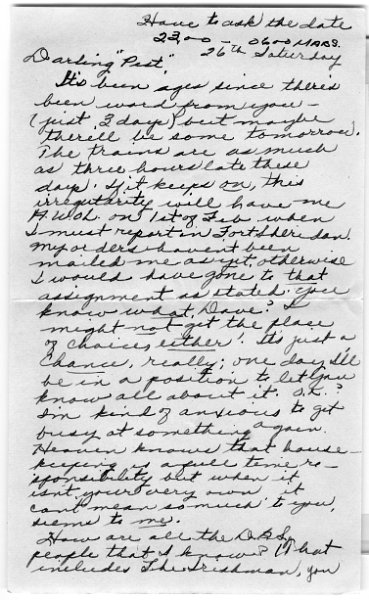 Have to ask the date
2200 - 0600 HABS.
26th Saturday
Darling "Pest"
It's been ages since there's
been word from you -
(just 3 days) but maybe
there'll be some tomorrow.
The trains are as much
as three hours late these
days. If it keeps on, this
irregularity will have me
A.W.O.L. on 1st of Feb when
I must report in Fort Sheridan.
My orders haven't been
mailed me as yet, otherwise
I would have gone to that
assignment as stated. You
know what, Dave? I
might not get the place
of choice, either! It's just a
chance, really; one day I'll
be in a position to let you
know all about it. O.K.?
I'm kind of anxious to get
busy at something again.
Heaven knows that house-
keeping is a full time re-
sponsibility but when it
isn't your very own, it
can't mean so much to you,
seems to me.
How are all the
people that I know? (That
includes The Irishman, you